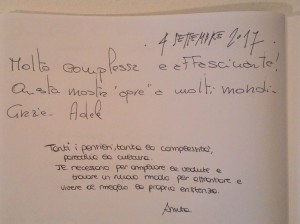 4 SETTEMBRE 2017.
Molto complessa e affascinante!
Questa mostra "apre" a molti mondi.
Grazie. Adele
Tanti i pensieri, tanta la complessità,
parecchia la cultura.
È necessario per ampliare le vedute e
trovare un nuovo modo per affrontare e
vivere al meglio la propria esistenza.
Anita